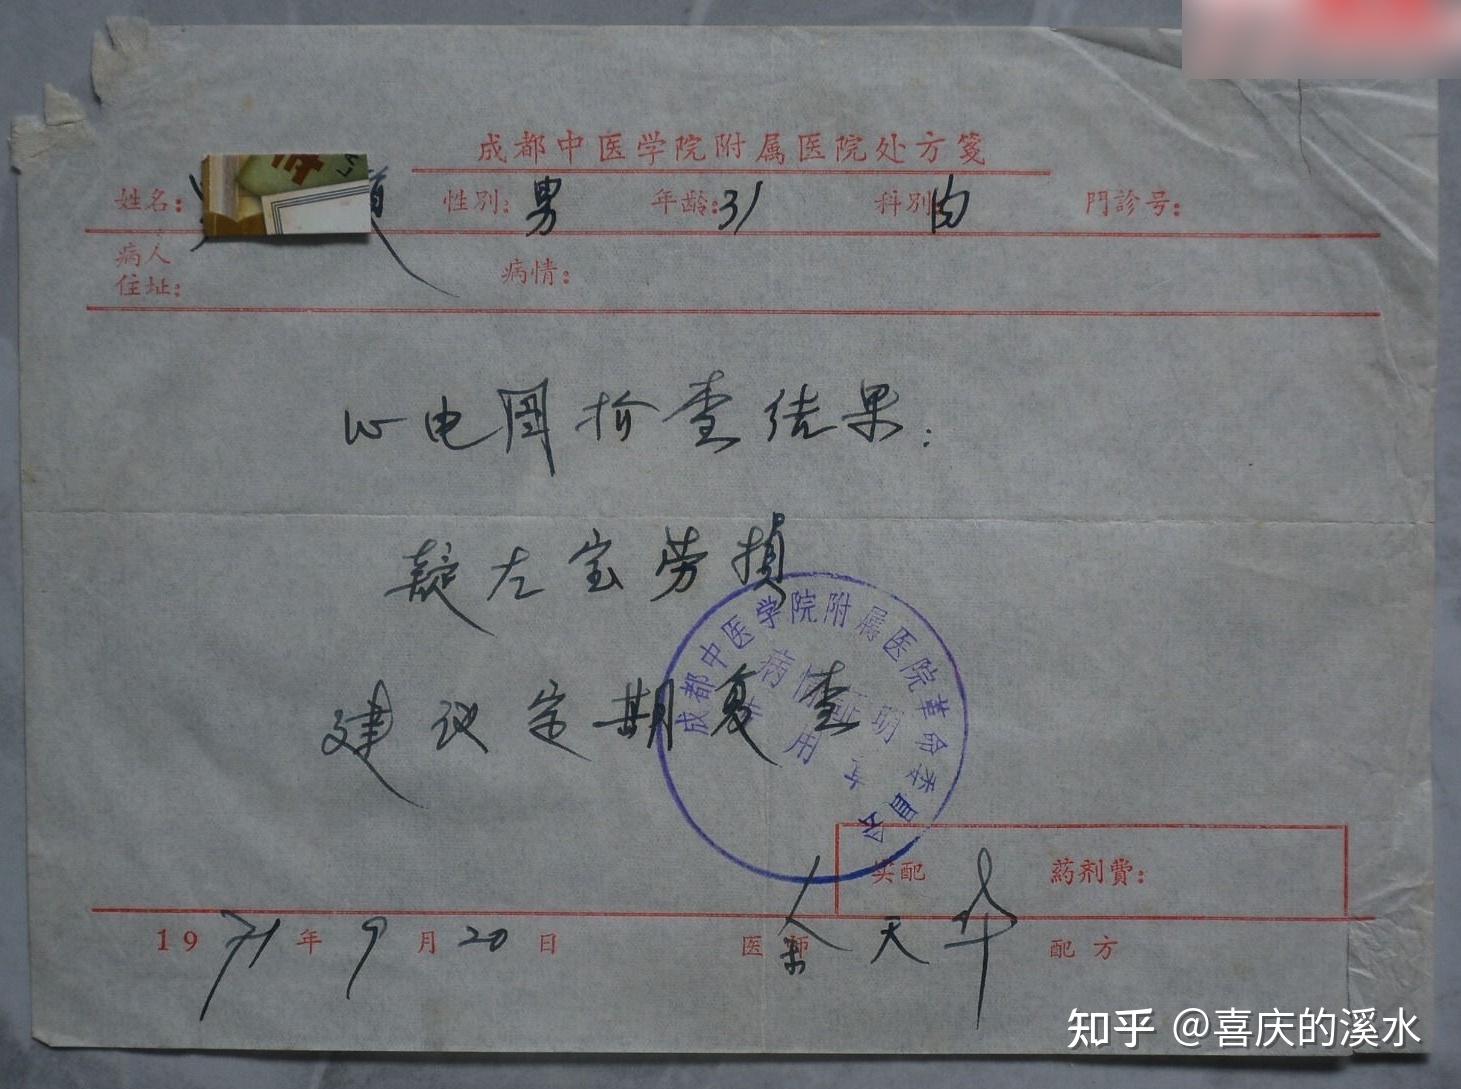 成都中医学院附属医院处方笺
姓名: 性别: 男 年龄: 31 科别: 内 門診号:
病人住址: 病情:
心电图检查结果:
疑左室劳损
建议定期复查
成都中医学院附属医院革命委员会
病情证明
专用
实配 药剂费:
1971年9月20日 医师 余天华 配方
知乎 @喜庆的溪水